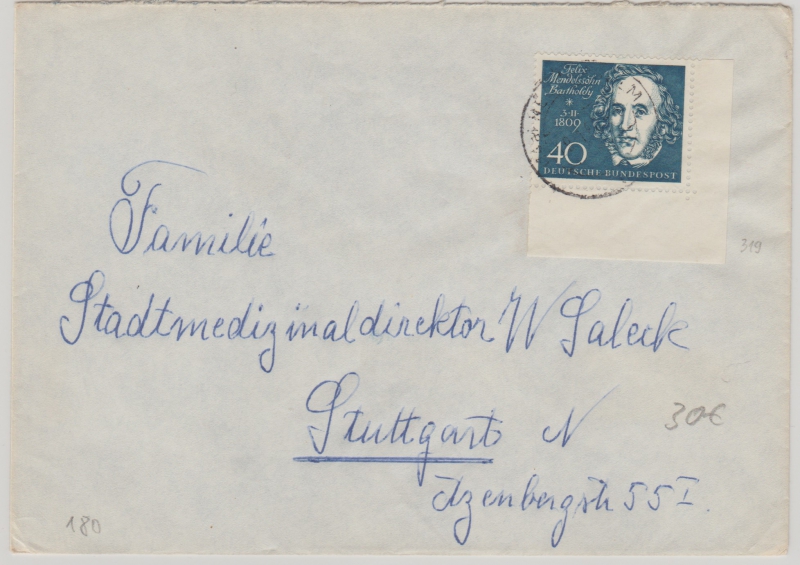 Felix
Mendelssohn
Bartholdy
* 3·II·
1809
40
DEUTSCHE BUNDESPOST
319
Familie
Stadtmedizinaldirektor W Saleck
Stuttgart N
30€
Azenbergstr 55 I.
180